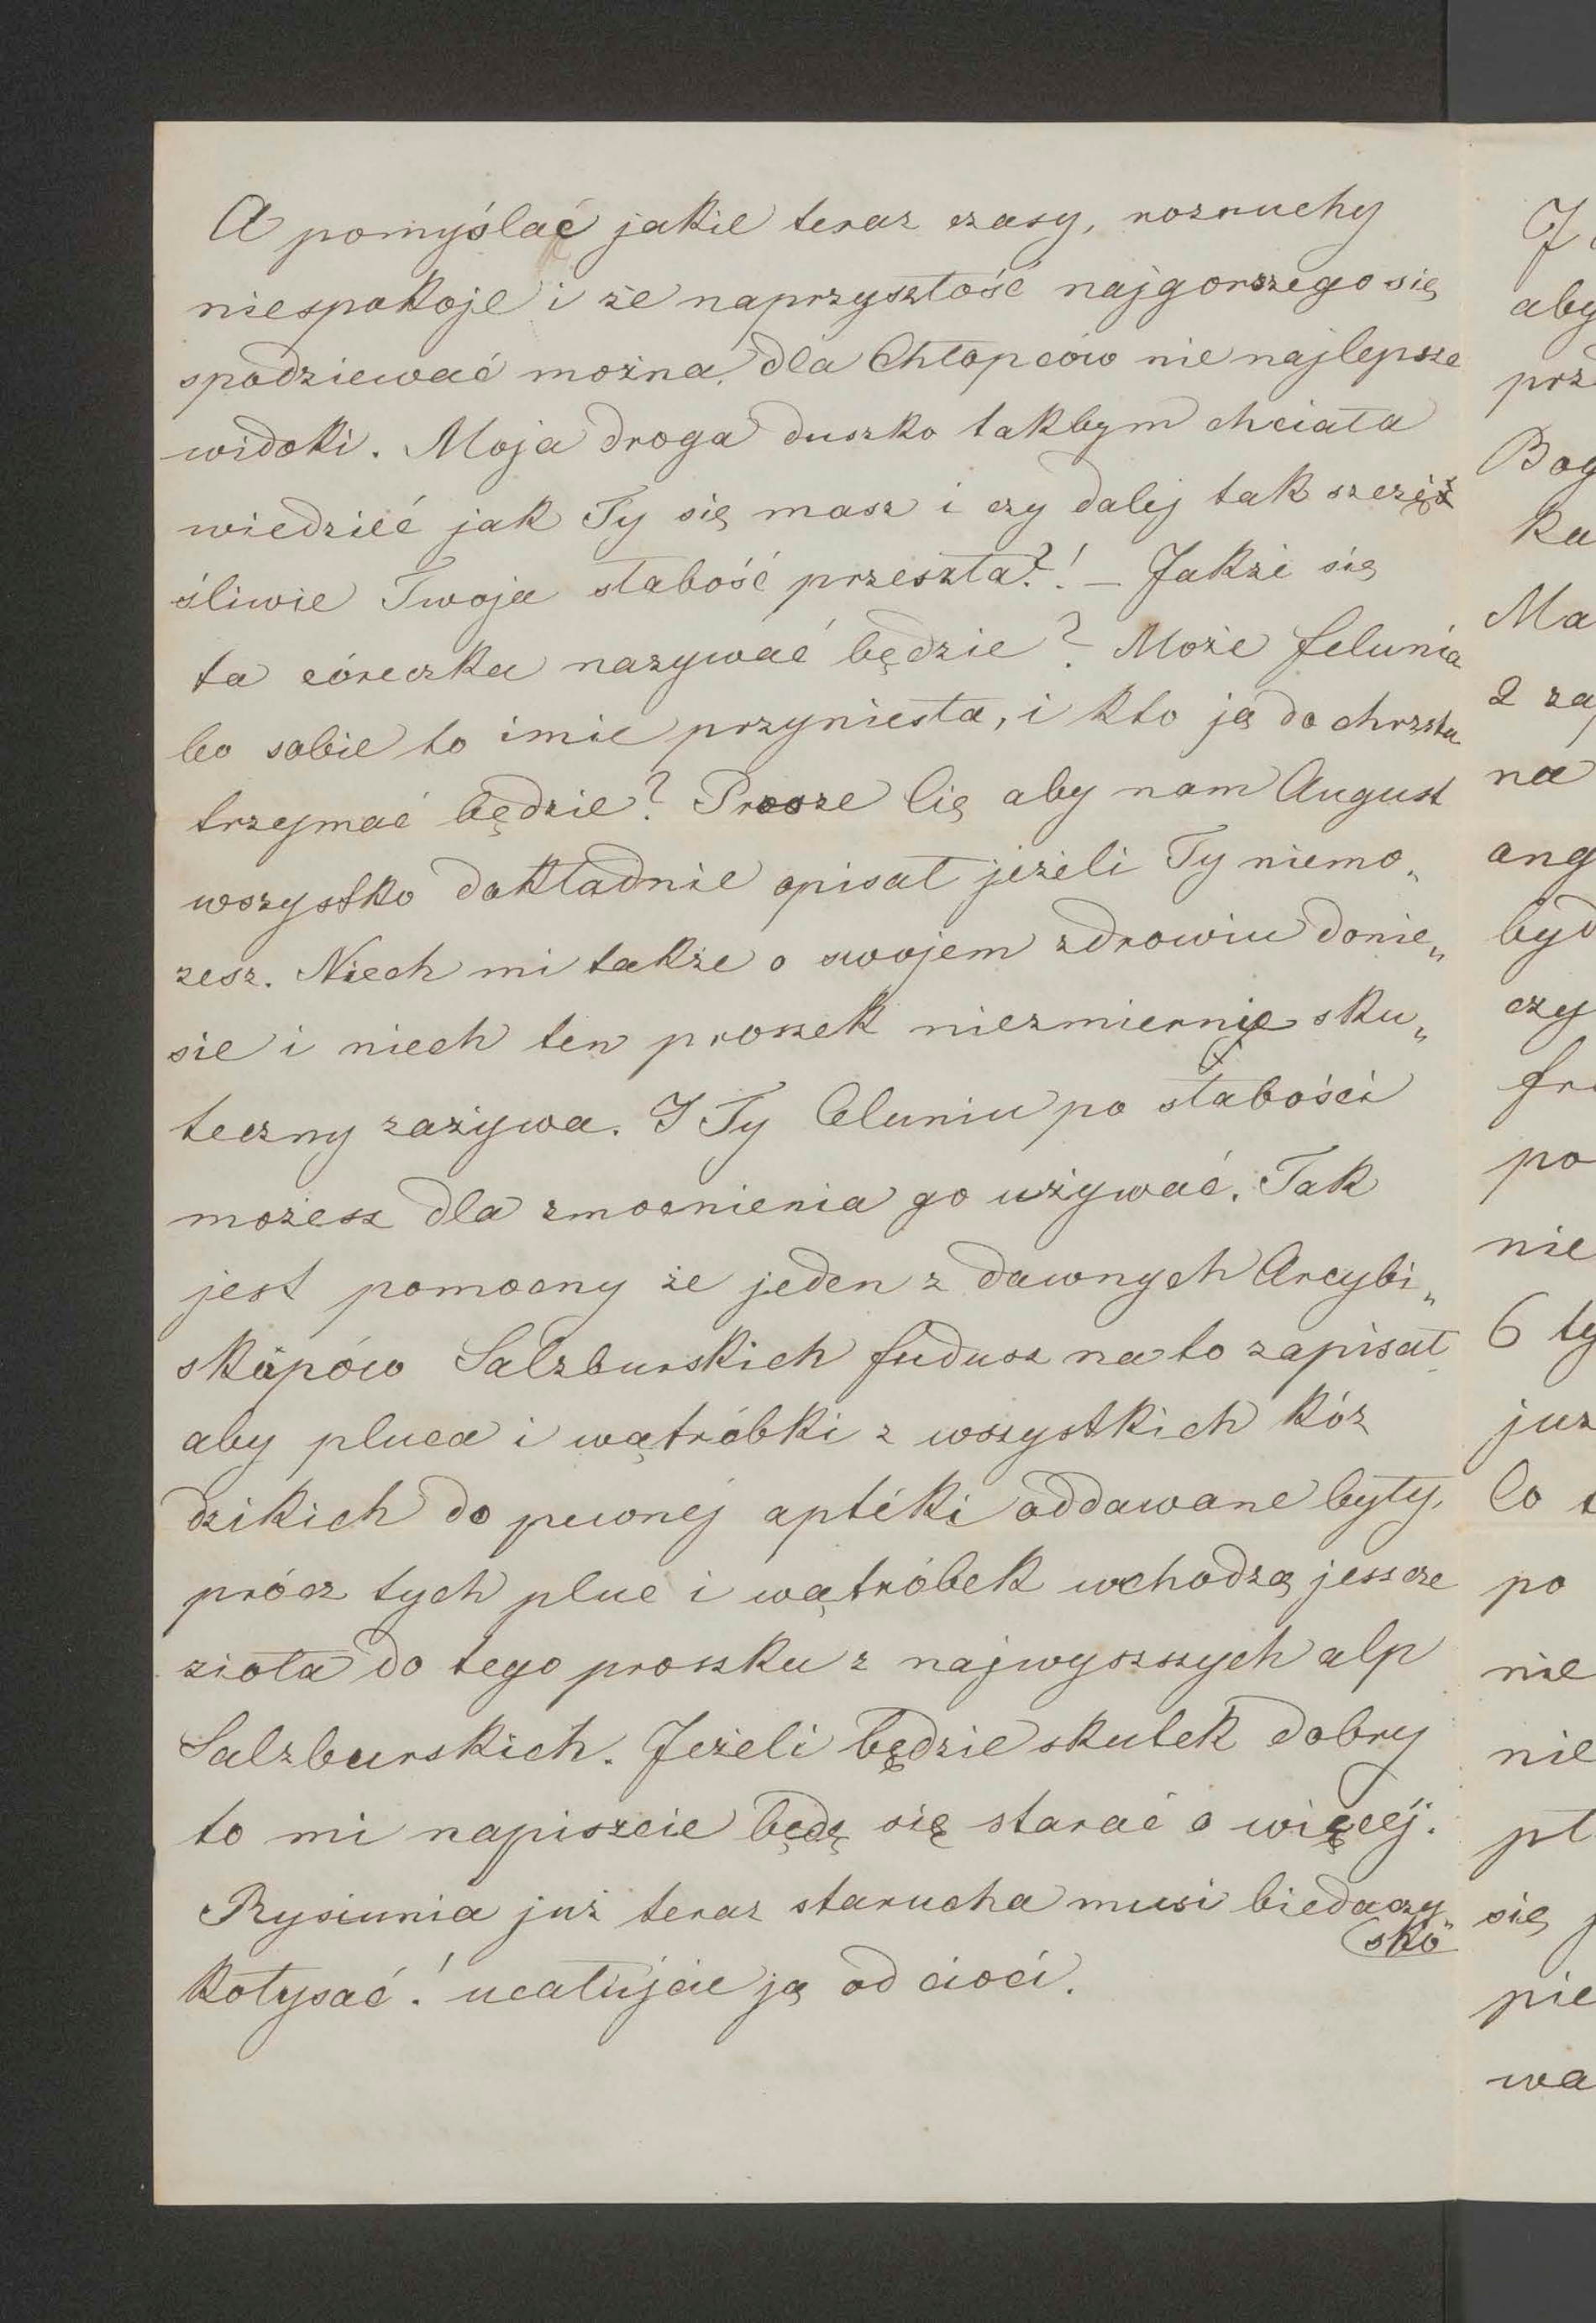 A pomyślać jakie teraz czasy, rozruchy
niespokoje i że naprzyszłość najgorszego się
spodziewać można, dla Chłopców nie najlepsze
widoki. Moja droga duszko takbym chciała
wiedzieć jak Ty się masz i czy dalej tak szczęś
śliwie Twoja słabość przeszła?! – Jakże się
ta córeczka nazywać będzie? Może felunia
bo sobie to imie przyniesła, i kto ją do chrztu
trzymać będzie? Prosze Cię aby nam August
wszystko dokładnie opisał jeżeli Ty niemo„
żesz. Niech mi także o swojem zdrowiu donie„
sie i niech ten proszek niezmiernie sku„
teczny zażywa. I Ty Celuniu po słabości
możesz dla zmocnienia go używać. Tak
jest pomocny że jeden z dawnych Arcybi„
skupów Salzburskich fudusz na to zapisał
aby pluca i wątróbki z wszystkich kóz
dzikich do pewnéj aptéki oddawane były,
prócz tych pluc i wątróbek wchodzą jeszcze
zioła do tego proszku z najwyszszych alp
Salzburskich. Jeżeli będzie skutek dobry
to mi napiszcie będę się starać o więcéj.
Rysiunia już teraz starucha musi biedaczy„
sko
kołysać! ucałujcie ją od cioci.
J
aby
prz
Bog
ka
Ma
2 za
na
ang
być
czy
fra
po
nie
6 ty
juz
Co
po
nie
nie
pł
się
pie
wa